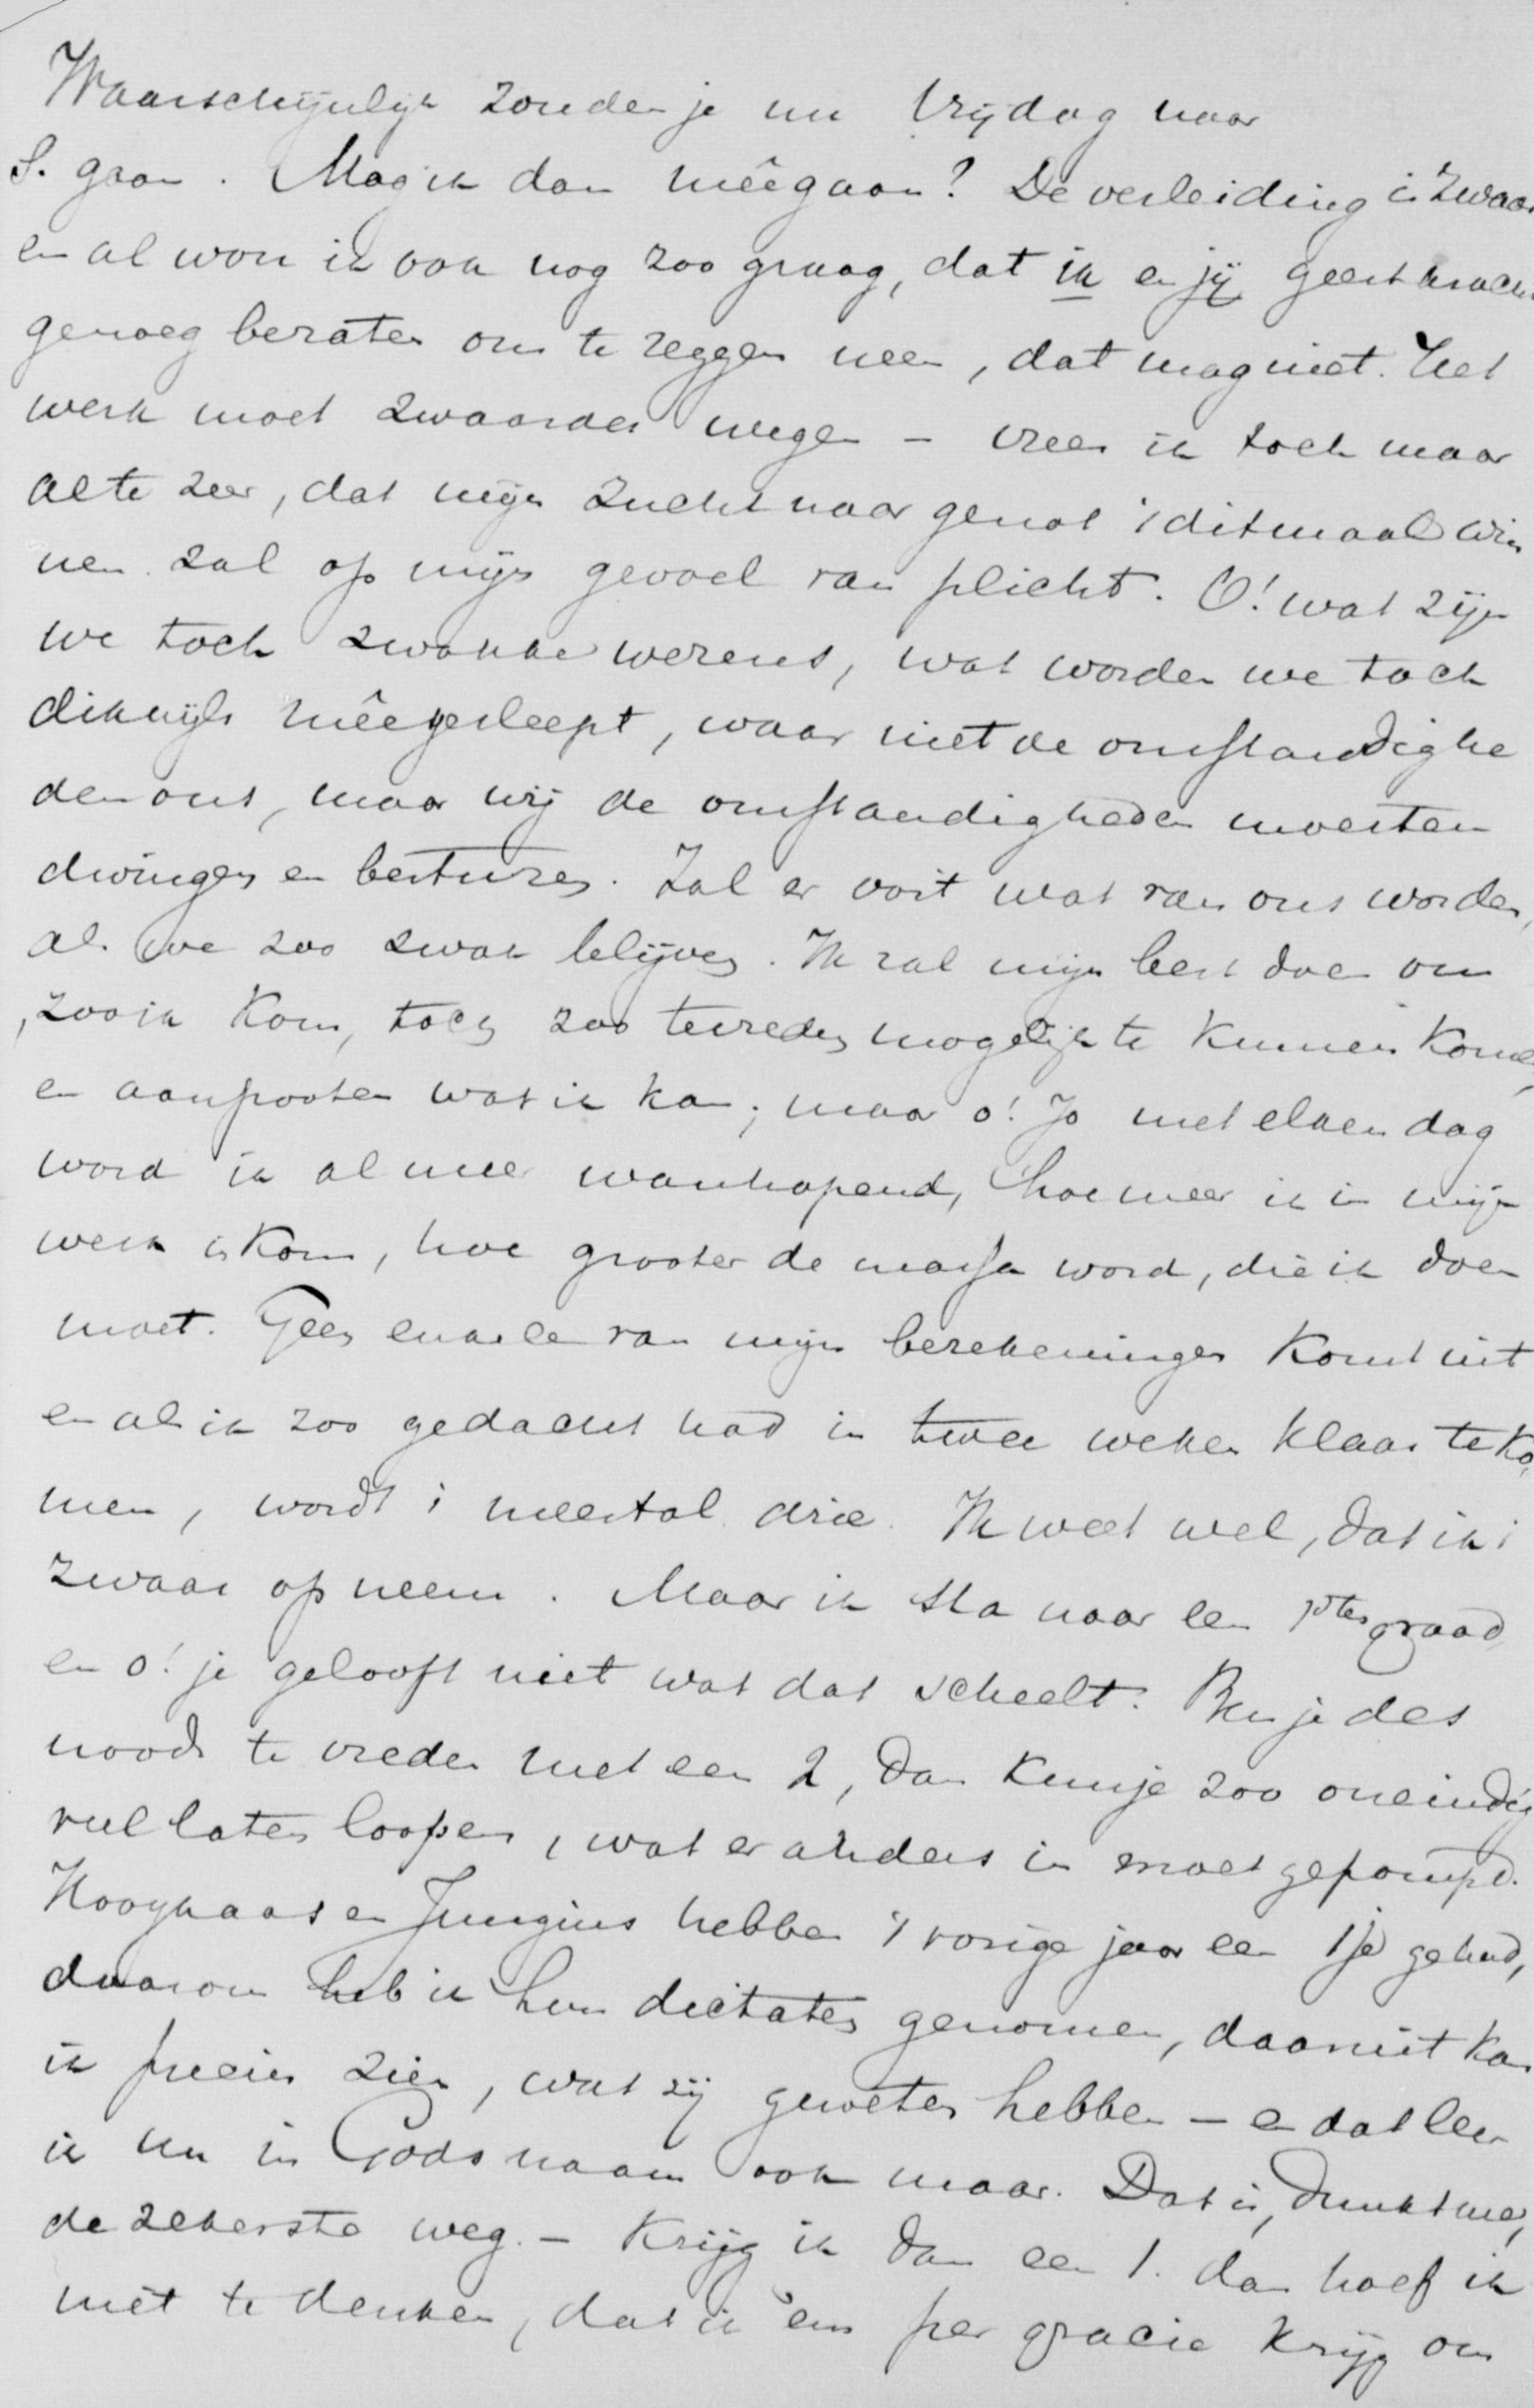 Waarschijnlijk zouden je nu Vrijdag naar
S. gaan. Mag ik dan mêegaan? De verleiding is zwaar
en al wou ik ook nog zoo graag, dat ik en jij geestkracht
genoeg bezaten om te zeggen neen, dat mag niet. Het
werk moet zwaarder wegen – vrees ik toch maar
al te zeer, dat mijn zucht naar genot 't ditmaal win
nen zal op mijn gevoel van plicht. O! wat zijn
we toch zwakke wezens, wat worden we toch
dikwijls mêegesleept, waar niet de omstandighe
den ons, maar wij de omstandigheden moesten
dwingen en besturen. Zal er ooit wat van ons worden,
als we zoo zwak blijven. Ik zal mijn best doen om
, zoo ik kom, toch zoo tevreden mogelijk te kunnen komen
en aanpooten wat ik kan; maar o! Jo met elken dag
word ik al meer wanhopend, hoe meer ik in mijn
werk kom, hoe grooter de massa word, die ik doen
moet. Geen enkele van mijn berekeningen komt uit
en als ik zoo gedacht had in twee weken klaar te ko
men, wordt 't meestal drie. Ik weet wel, dat ik 't
zwaar opneem. Maar ik sta naar een 1sten graad
en o! je gelooft niet wat dat scheelt. Ben je des
noods te vreden met een 2, dan kun je zoo oneindig
veel laten loopen, wat er anders in moet gepompt.
Hooykaas en Jungius hebben 't vorige jaar een 1je gehad,
daarom heb ik hun dictaten genomen, daaruit kan
ik precies zien, wat zij geweten hebben – en dat leer
ik nu in Gods naam ook maar. Dat is, dunkt me,
de zekerste weg. – Krijg ik dan een 1. dan hoef ik
niet te denken, dat ik 'em per gracie krijg om